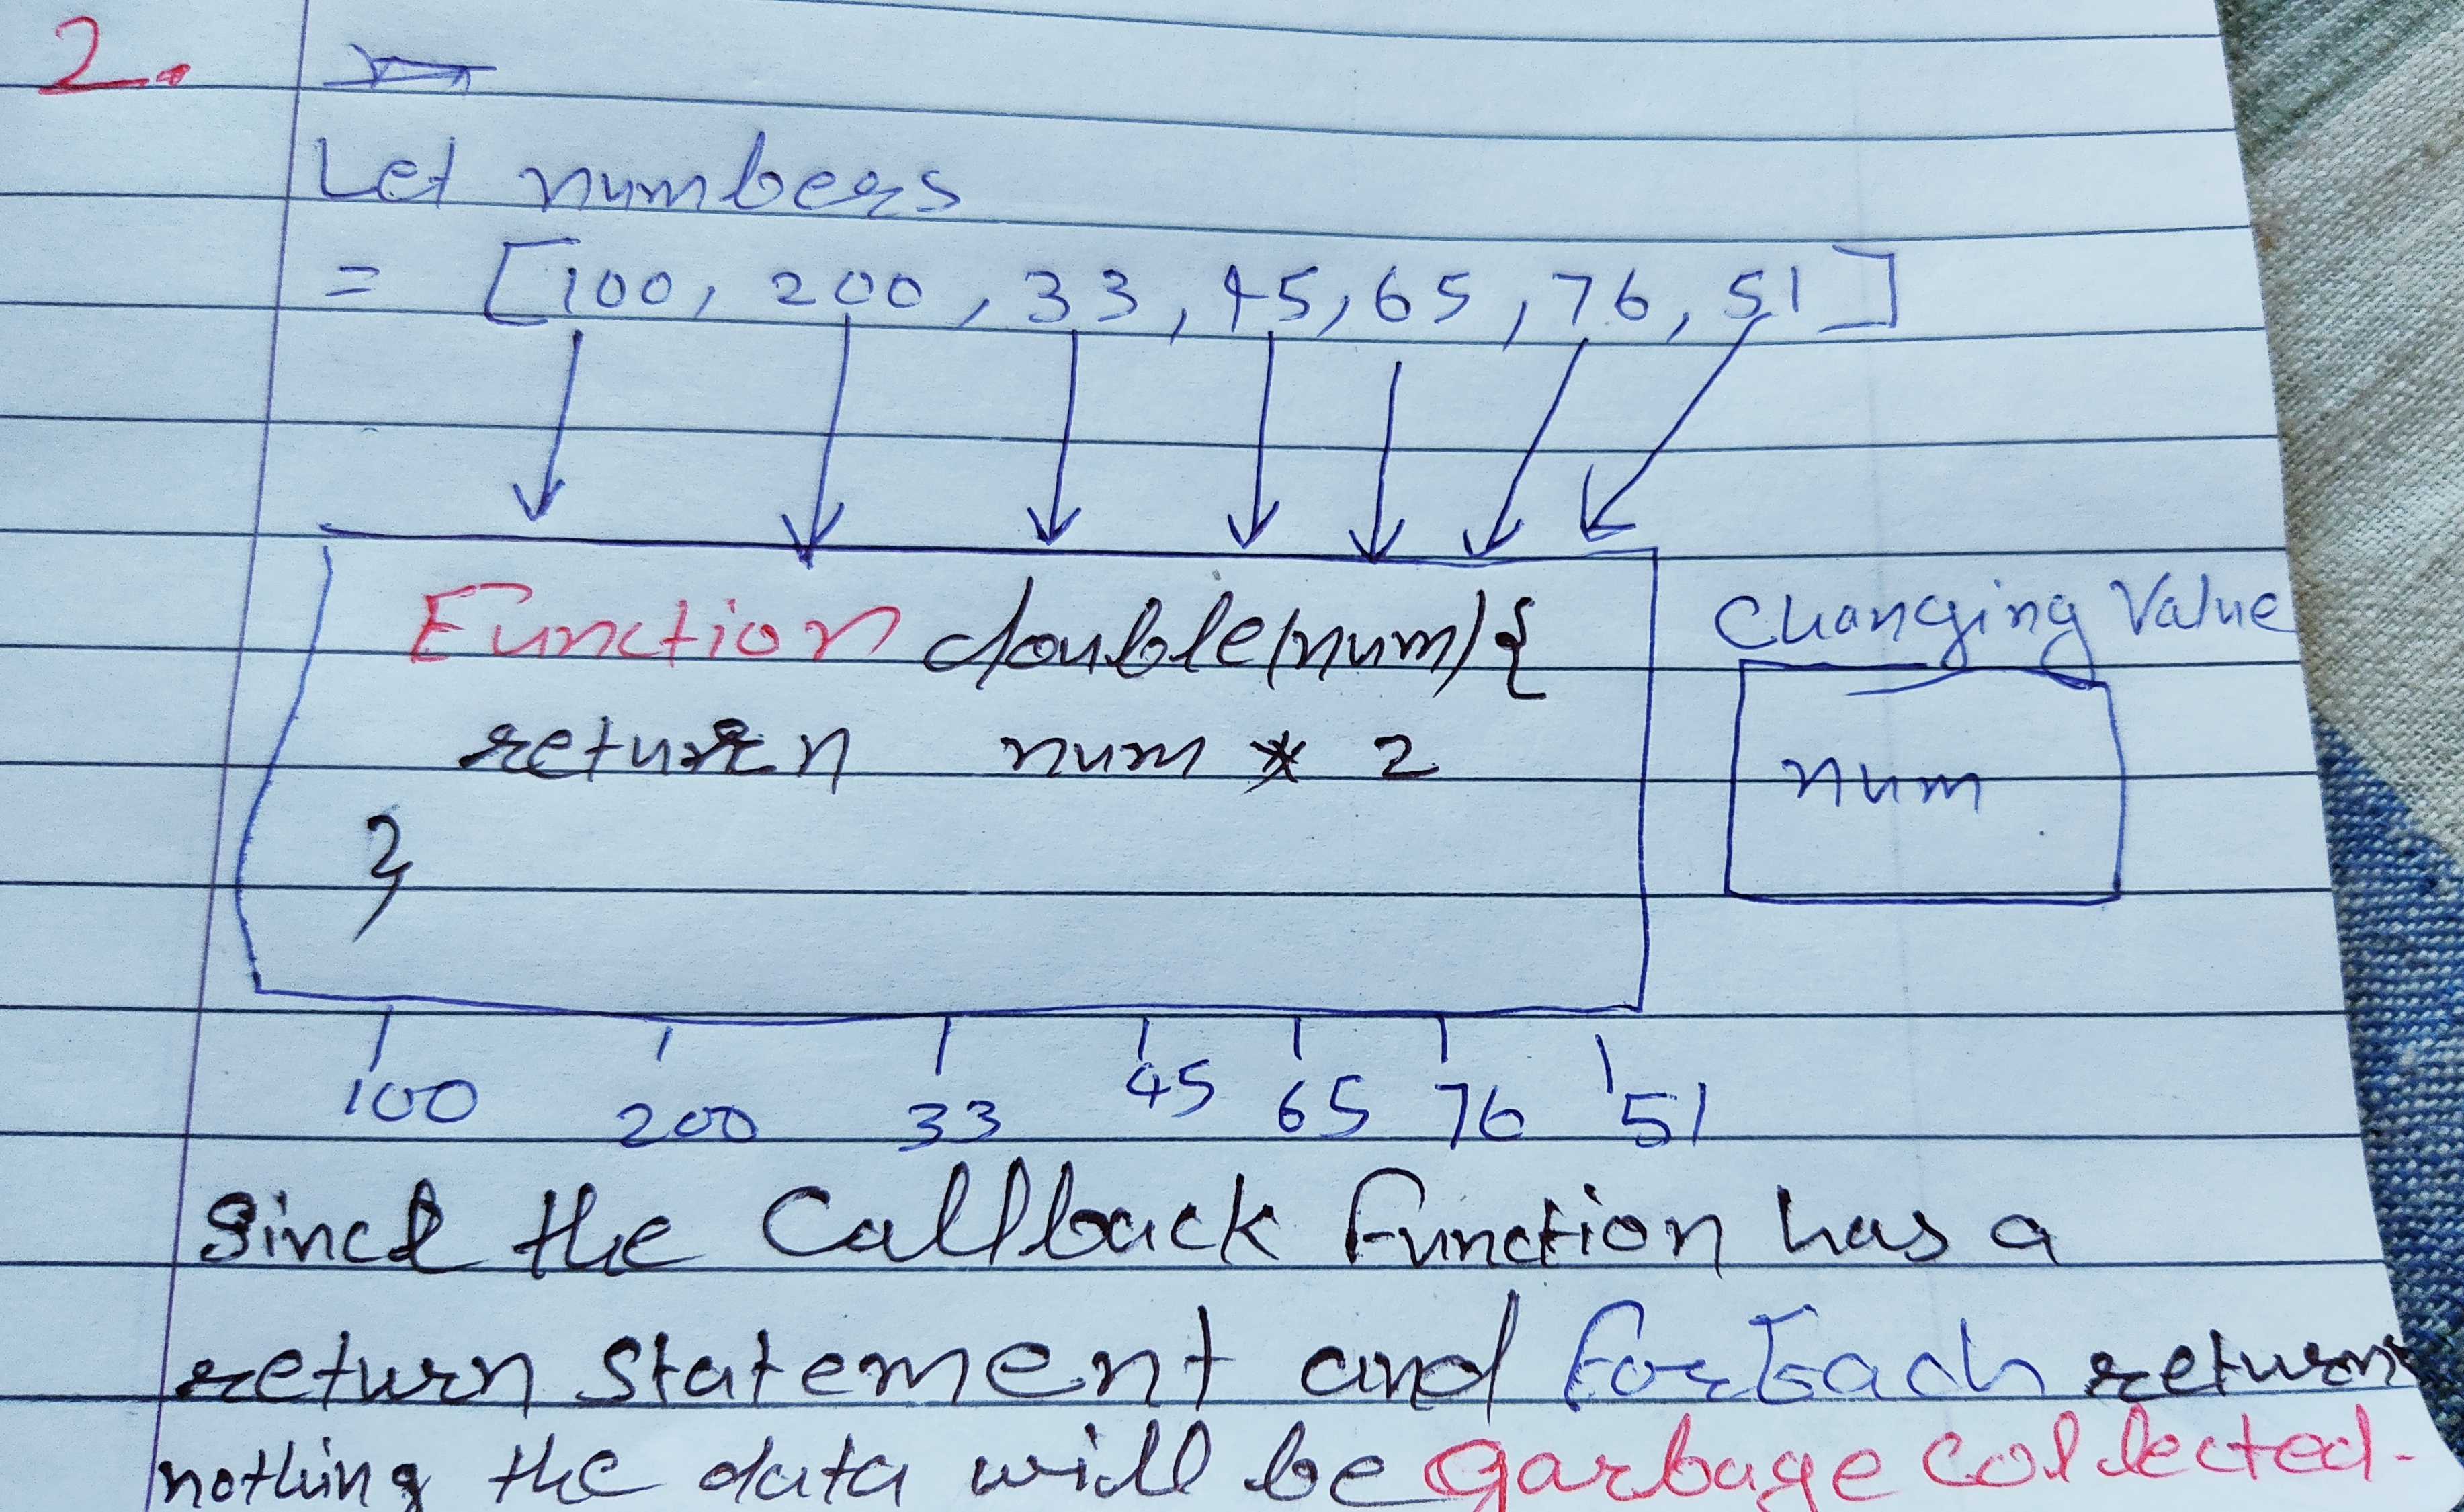 2.
Let numbers
= [100, 200, 33, 45, 65, 76, 51]
Function double(num){
Changing Value
return num * 2
num
}
100 200 33 45 65 76 51
Since the Callback function has a
return statement and forEach returns
nothing the data will be garbage collected.